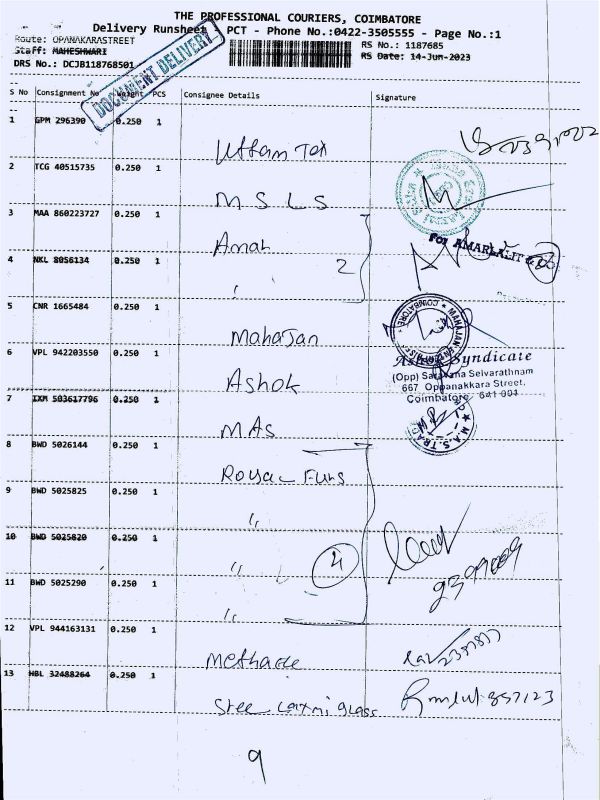 THE PROFESSIONAL COURIERS, COIMBATORE
Delivery Runsheet PCT - Phone No.:0422-3505555 - Page No.:1
Route: OPANAKARASTREET
RS No.: 1187685
Staff: MAHESHWARI
RS Date: 14-Jun-2023
DRS No.: DCJB118768501
DOCUMENT DELIVERY
S No Consignment No Weight PCS Consignee Details Signature
1 GPM 296390 0.250 1 Uttam Tex
2 TCG 40515735 0.250 1 M S L S
3 MAA 860223727 0.250 1 Amar
For AMARLALIT & CO
4 NKL 8056134 0.250 1 " 2
5 CNR 1665484 0.250 1 Mahajan
MAHAJAN ENTERPRISES COIMBATORE
6 VPL 942203550 0.250 1 Ashok
Ashok Syndicate
(Opp) Saravana Selvarathnam
667 Oppanakkara Street,
Coimbatore 641 001
7 IXM 503617796 0.250 1 MAS
8 BWD 5026144 0.250 1 Royal Furs
9 BWD 5025825 0.250 1 "
10 BWD 5025820 0.250 1 " 4
11 BWD 5025290 0.250 1 "
12 VPL 944163131 0.250 1
13 HBL 32488264 0.250 1 Sree Laxmi glass
9